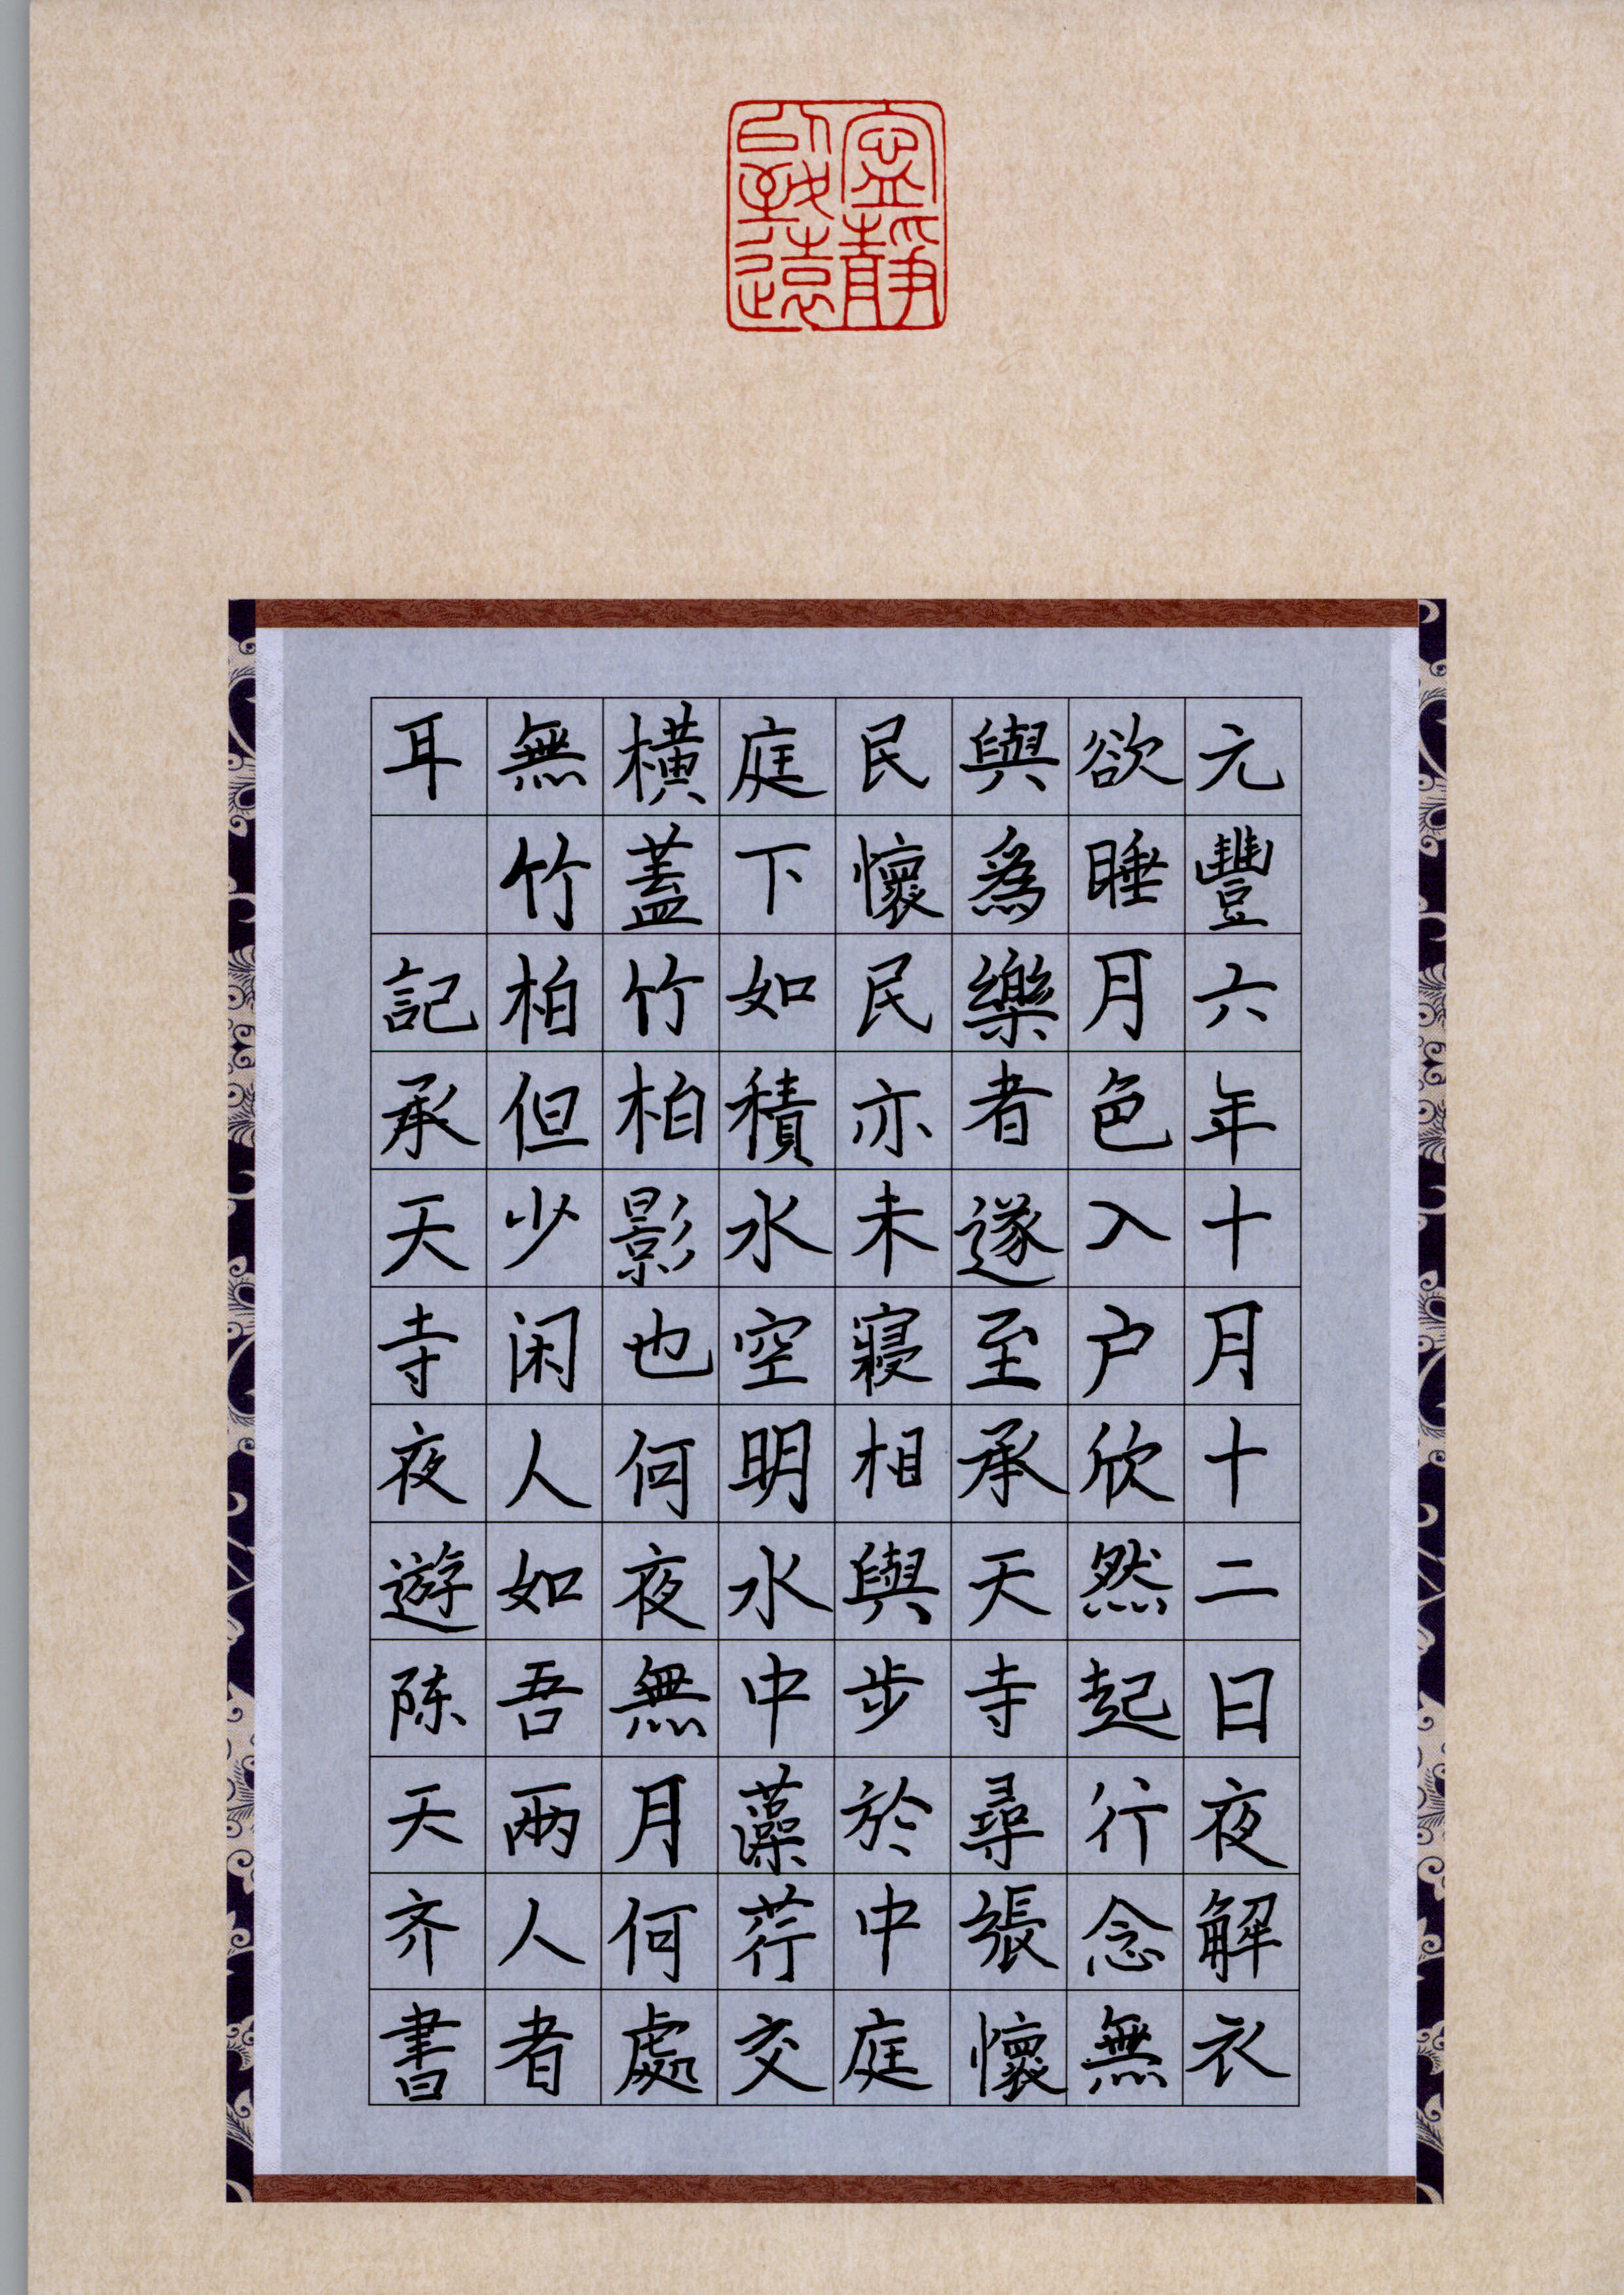 寧靜致遠
元豐六年十月十二日夜解衣
欲睡月色入户欣然起行念無
與為樂者遂至承天寺尋張懷
民懷民亦未寢相與步於中庭
庭下如積水空明水中藻荇交
橫蓋竹柏影也何夜無月何處
無竹柏但少闲人如吾兩人者
耳 記承天寺夜遊陈天齐書